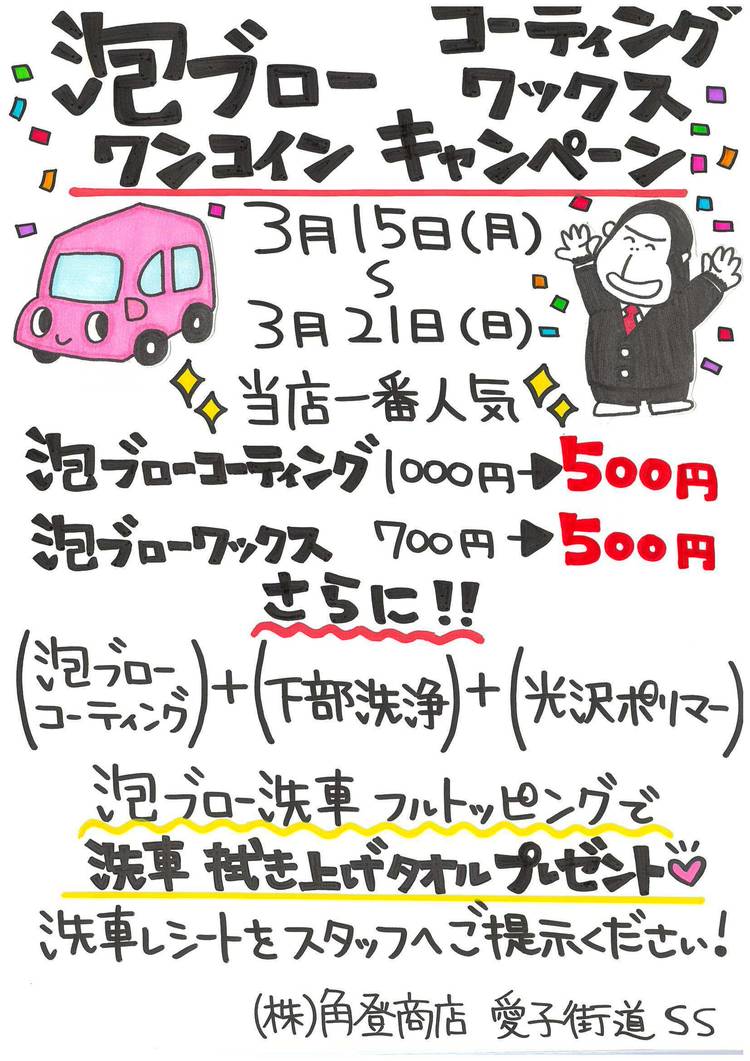 泡ブロー コーティング
ワックス
ワンコイン キャンペーン
3月15日(月)
〜
3月21日(日)
当店一番人気
泡ブローコーティング 1000円→500円
泡ブローワックス 700円→500円
さらに!!
(泡ブローコーティング)+(下部洗浄)+(光沢ポリマー)
泡ブロー洗車 フルトッピングで
洗車 拭き上げタオル プレゼント♡
洗車レシートをスタッフへご提示ください!
(株)角登商店 愛子街道SS